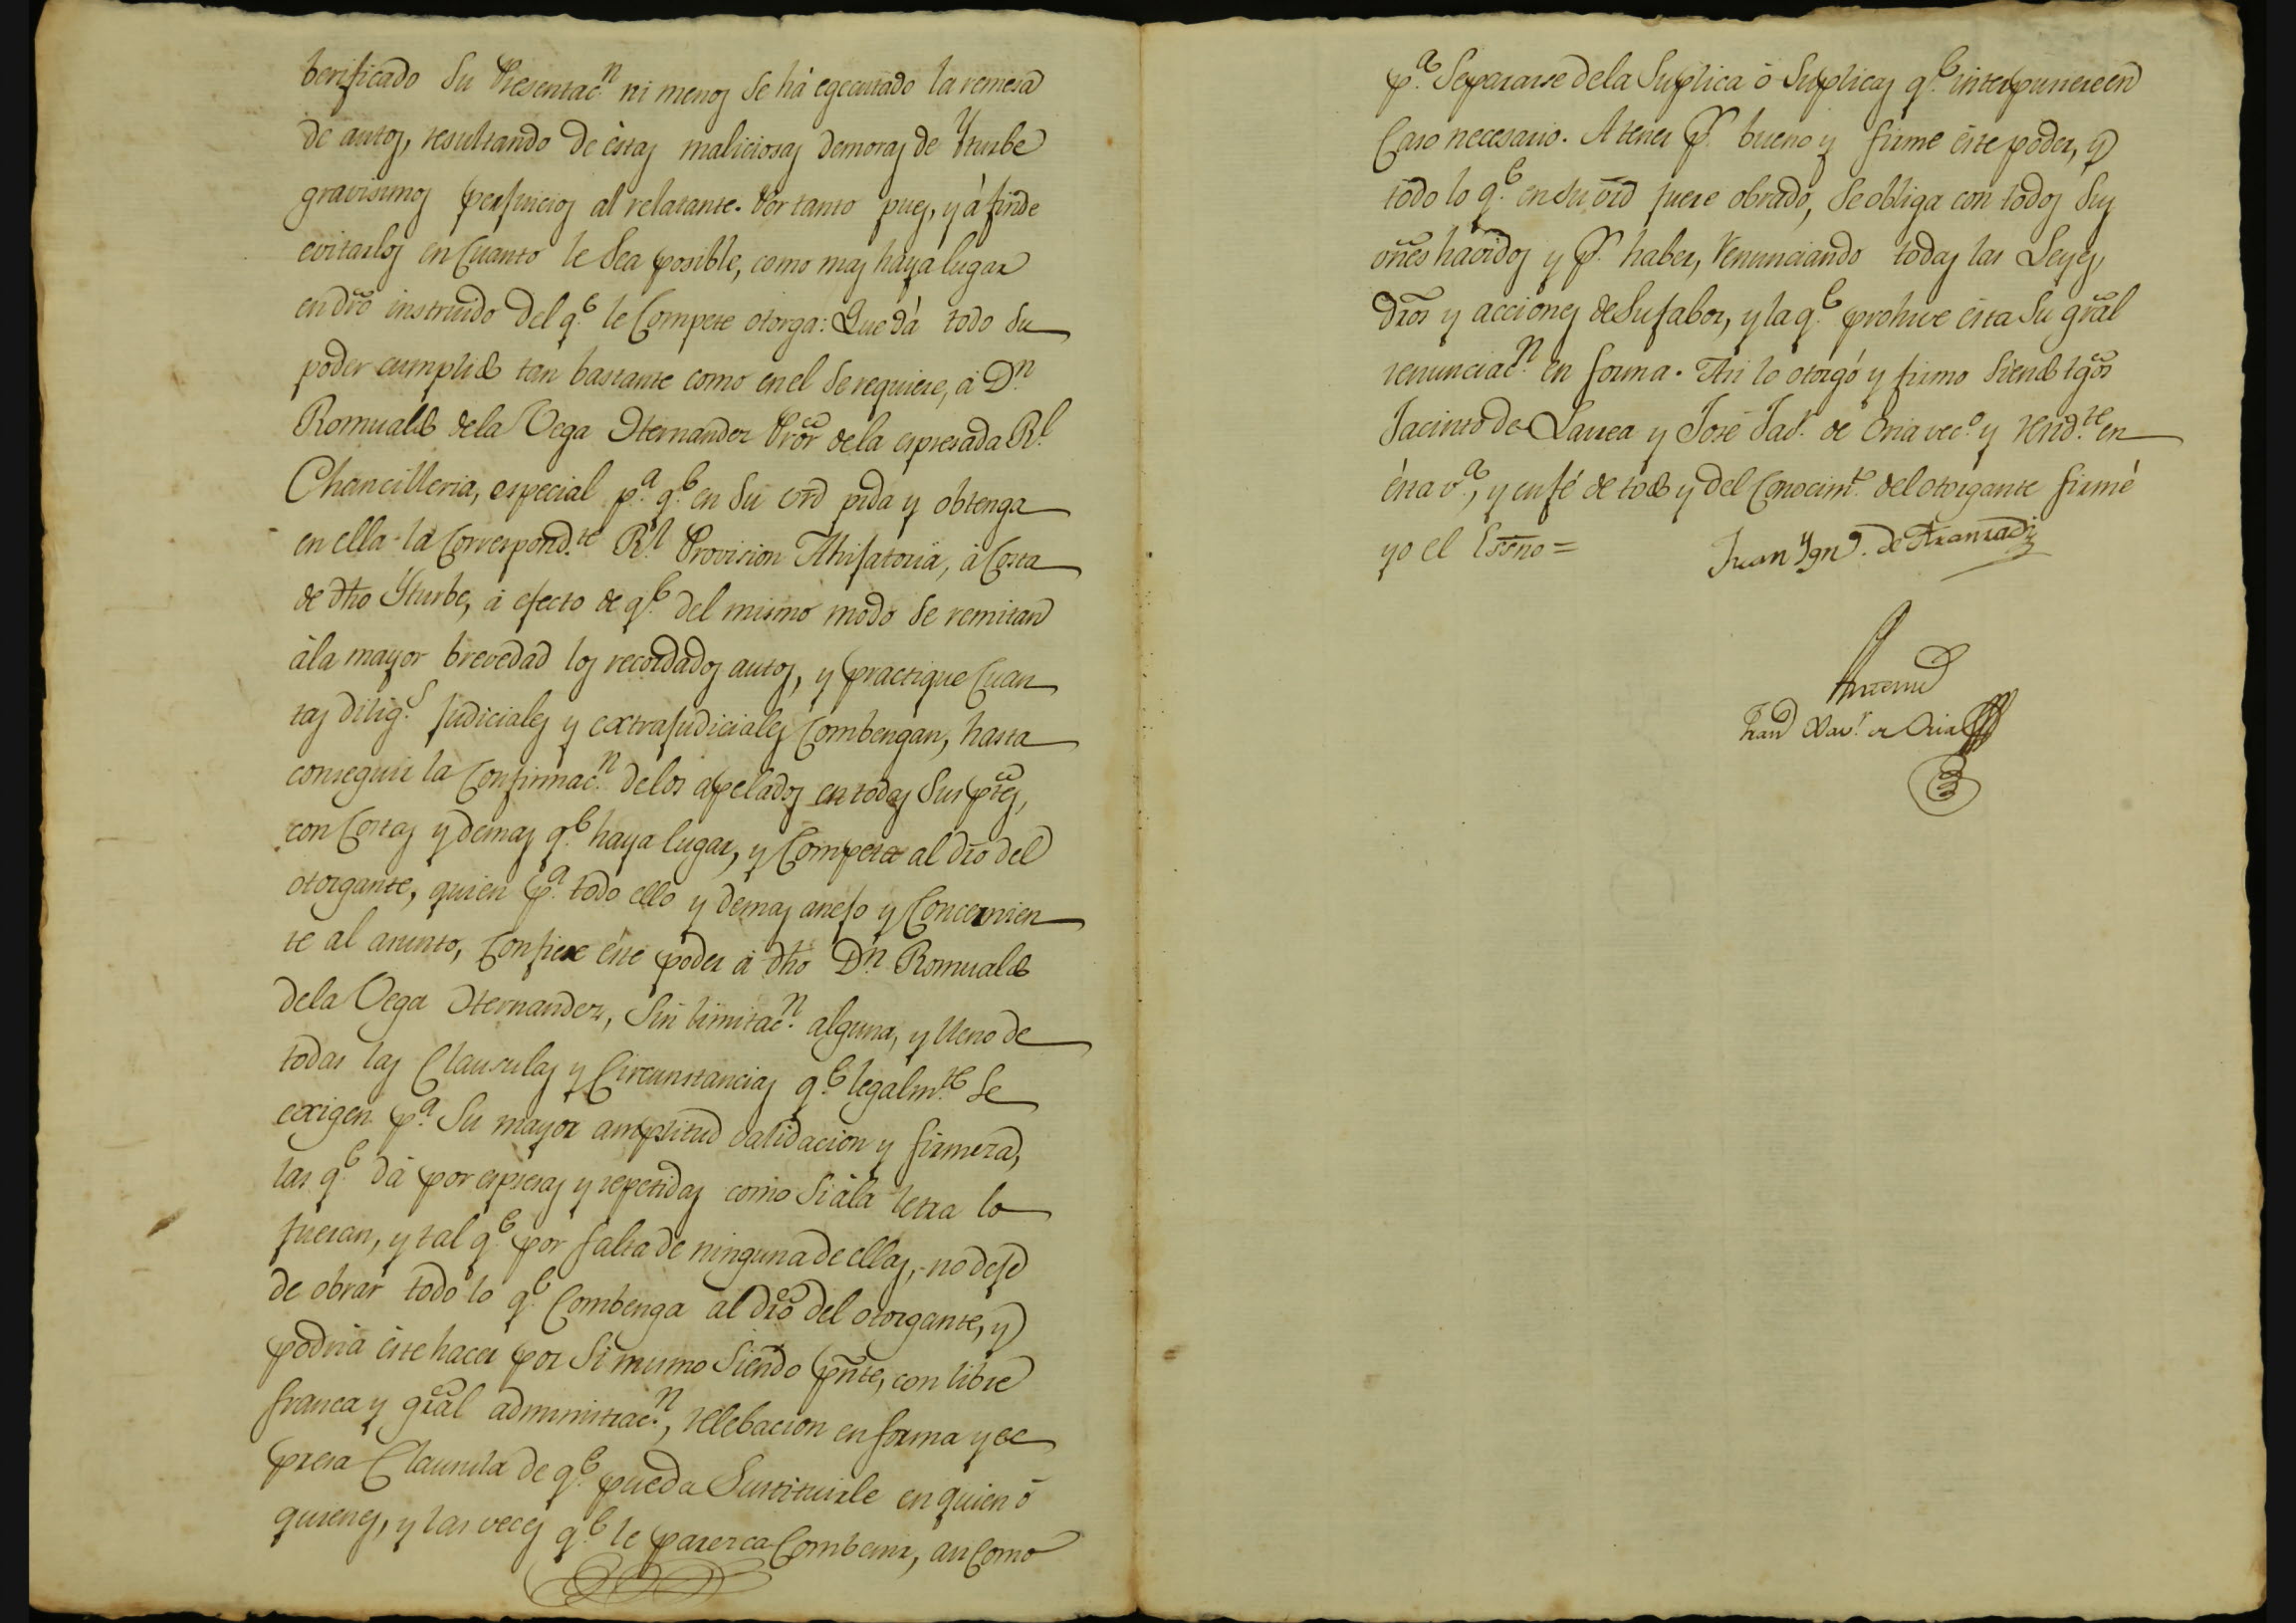 berificado su Presentac.n ni menos se há egecutado la remesa
de autos, resultando de éstas maliciosas demoras de Yturbe
gravisimos perjuicios al relatante. Por tanto pues, y á fin de
evitarlos en Cuanto le sea posible, como mas haya lugar
en dro instruido del q.e le Compete otorga: Que dá todo su
poder cumplido tan bastante como en el se requiere, á D.n
Romualdo de la Vega Hernandez Pror de la espresada R.l
Chancilleria, especial p.a q.e en su vrd pida y obtenga
en ella la Correspond.te R.l Provision Ahijatoria, á Costa
de dho Yturbe, á efecto de q.e del mismo modo se remitan
á la mayor brevedad los recordados autos, y practique Cuan
tas dilig.s judiciales y extrajudiciales Combengan, hasta
conseguir la Confirmac.n de los apelados en todas sus ptes,
con Costas y demas q.e haya lugar, y Competa al dro del
otorgante, quien p.a todo ello y demas anejo y Concernien
te al asunto, Confiere éste poder á dho D.n Romualdo
de la Vega Hernandez, sin limitac.n alguna, y lleno de
todas las Clausulas y Circunstancias q.e legalm.te se
exigen p.a su mayor amplitud validacion y firmeza,
las q.e dá por espresas y repetidas como si á la letra lo
fueran, y tal q.e por falta de ninguna de ellas, no deje
de obrar todo lo q.e Combenga al dro del otorgante, y
podria éste hacer por si mismo siendo pnte, con libre
franca y gral administrac.n, relebacion en forma y ex
presa Clausula de q.e pueda Sustituirle en quien ó
quienes, y las veces q.e le parezca Combenir, asi Como
p.a Separarse de la Suplica ó Suplicas q.e interpusiere en
Caso necesario. A tener p.r bueno y firme éste poder, y
todo lo q.e en su vrd fuere obrado, se obliga con todos sus
vnes havidos y p.r haber, renunciando todas las Leyes,
dros y acciones de su fabor, y la q.e prohive ésta su gral
renunciac.n en forma. Asi lo otorgó y firmo siendo tgos
Jacinto de Laurea y José Jav.r de Oria vec.s y resid.te en
ésta v.a, y en fé de todo y del Conocim.to del otorgante firmé
yo el Essno =
Juan Ygn.o de Aranzadi
Antemi
Fran.co Xav.r de Oria